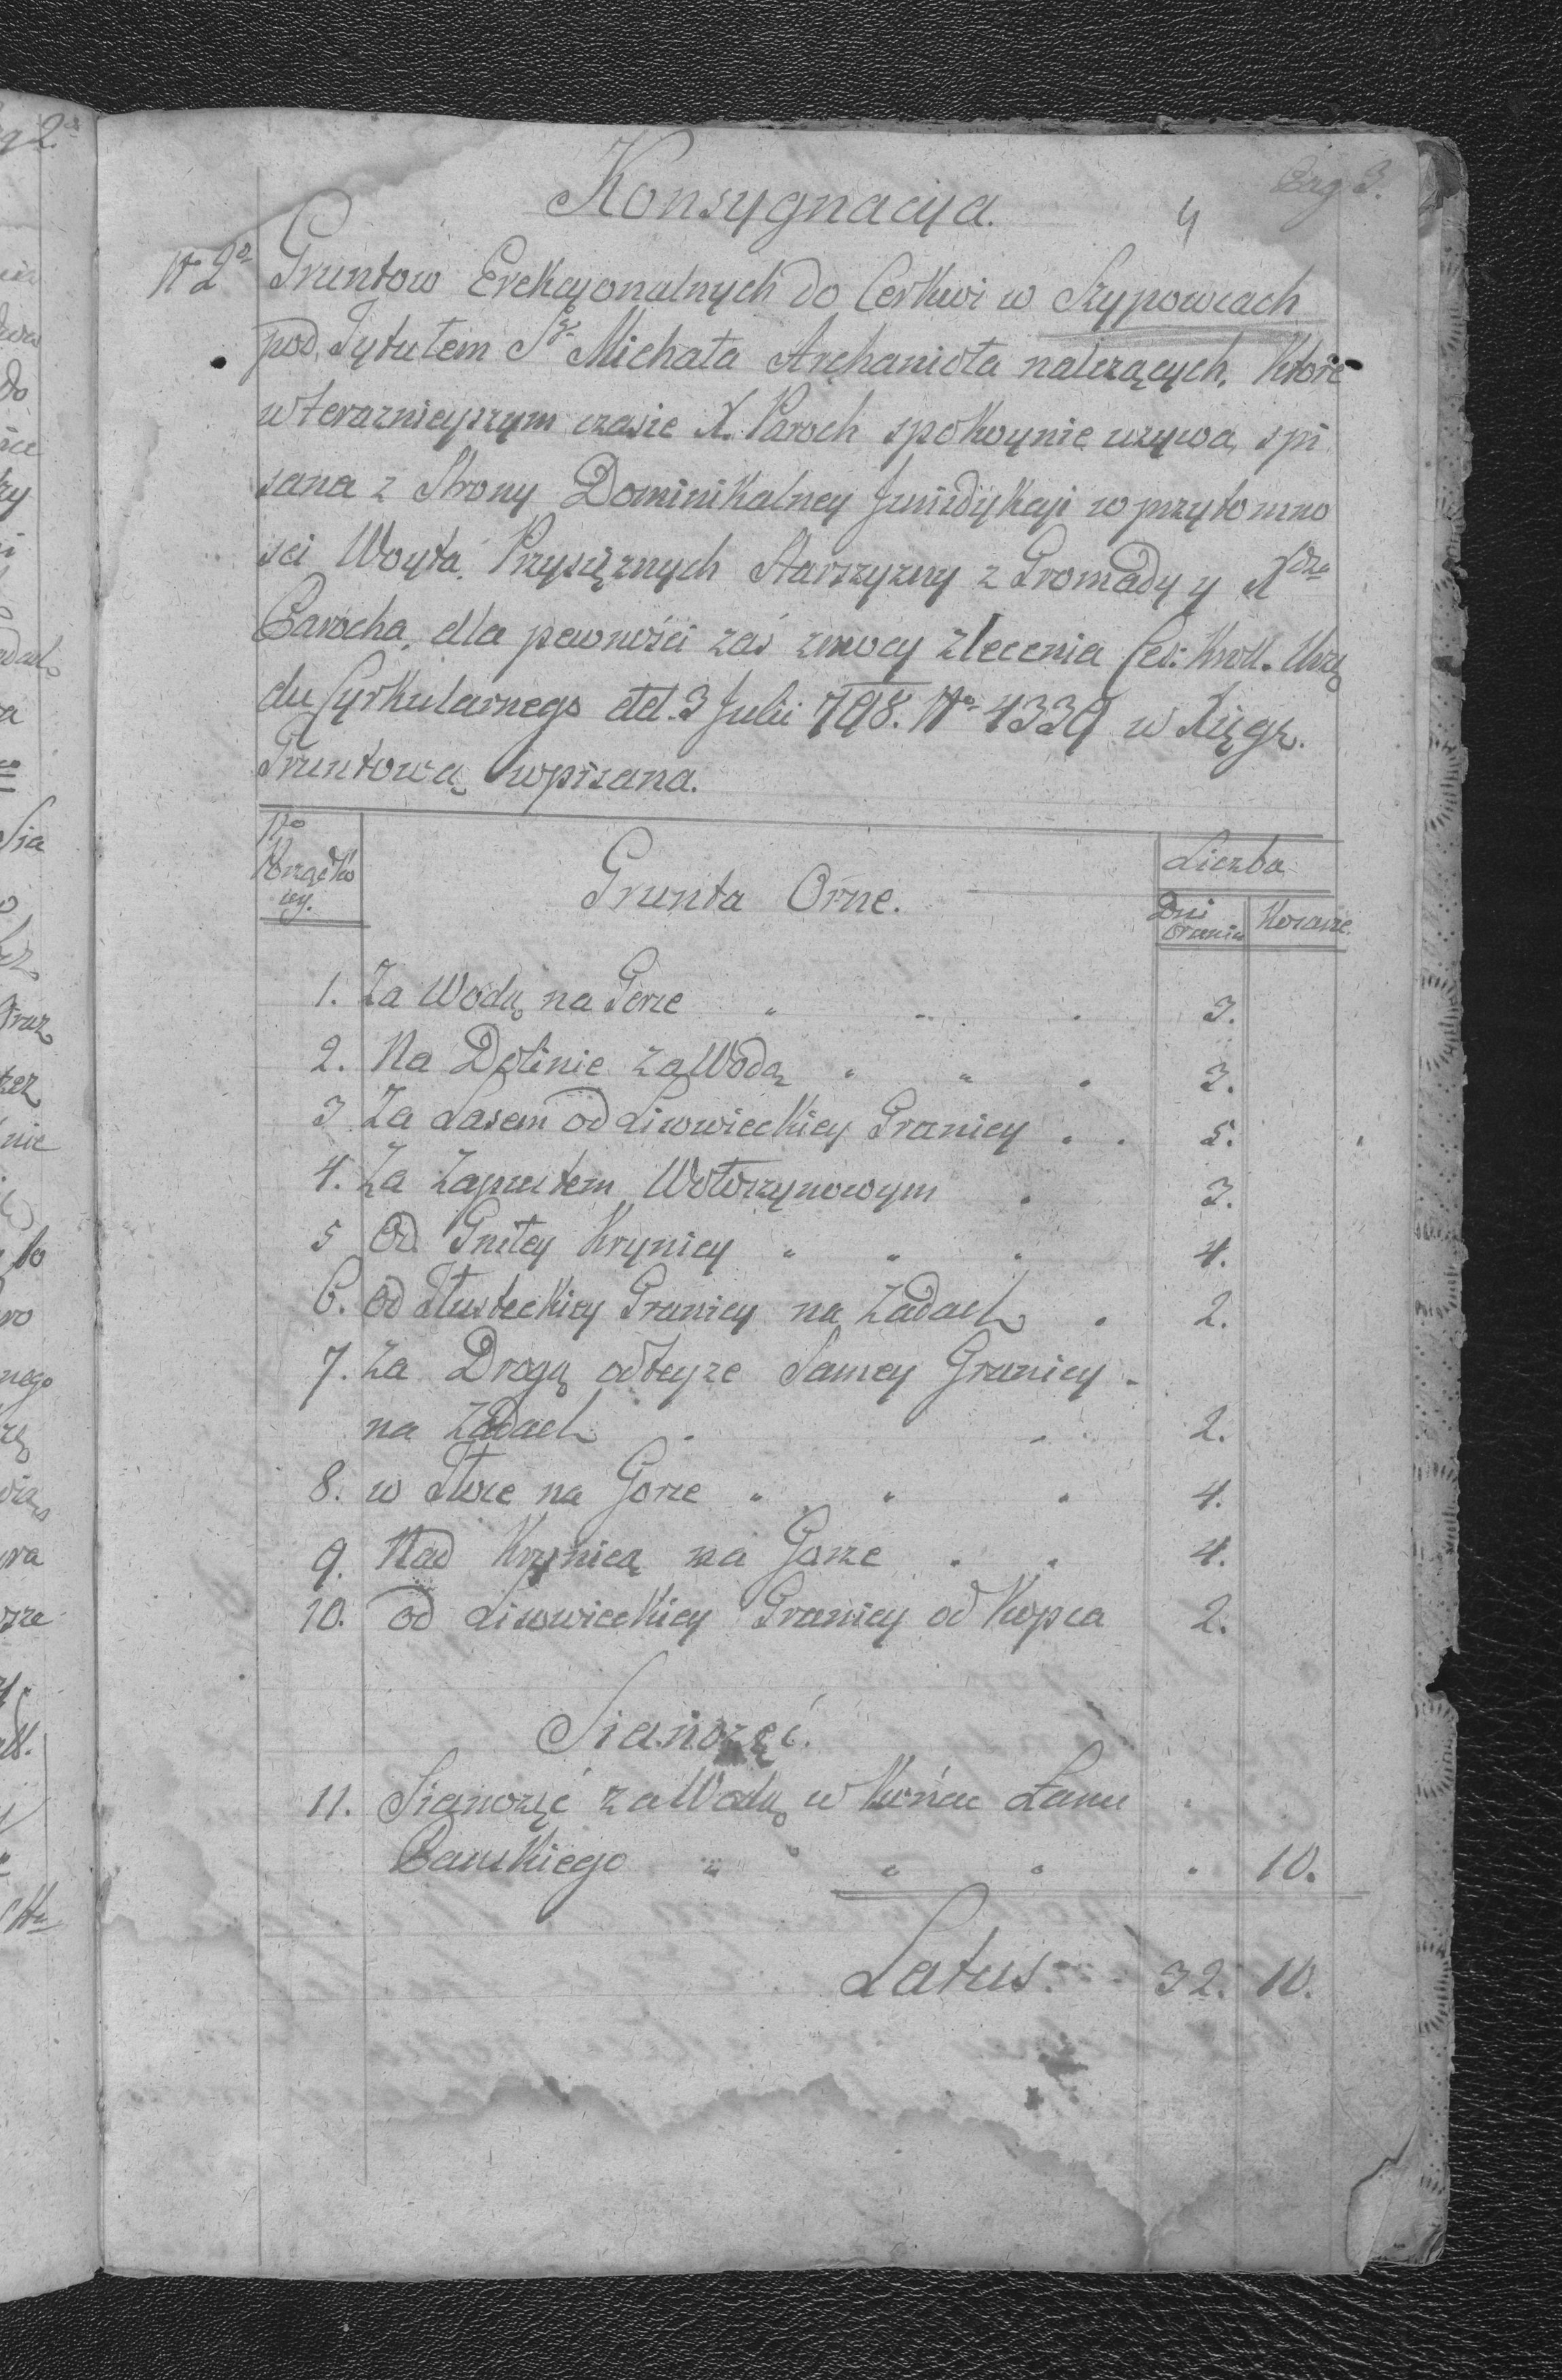 Pag 3.
4
Konsygnacyja.
No 2o Gruntow Erekcyonalnych do Cerkwi w Szypowcach
pod Tytułem Sgo Michała Archanioła należących, Które
w teraznieyszym czasie X. Paroch spokoynie uzywa, spi
sana z Strony Dominikalney Jurizdykcyi w przytomno
sci Woyta, Przysięznych Starszyzny z Gromady y Xdza
Parocha, dla pewności zaś zmocy zlecenia Ces: Krol. Urzę
du Cyrkularnego dtd. 3 Julii 798. No 4339 w Xięgę
Gruntową wpisana.
No Porządkowy.
Grunta Orne.
Liczba
Dni Orania
Kosarze
1. Za Wodą na Gorze 3.
2. Na Dolinie za Wodą 3.
3 Za Lasem od Lisowieckiey Granicy 5.
4. Za Zapustem Wołoszynowym 3.
5 Od Gniłey Krynicy 4.
6. Od Tłusteckiey Granicy na Zadach 2.
7. Za Drogą od teyze Samey Granicy
na Zadach 2.
8. w na Gorze 4.
9. Nad Krynicą na Gorze 4.
10. od Lisowieckiey Granicy od Kopca 2.
Sianożęć.
11. Sianożęć za Wodą w Końcu Łanu
Pańskiego 10.
Latus. 32. 10.